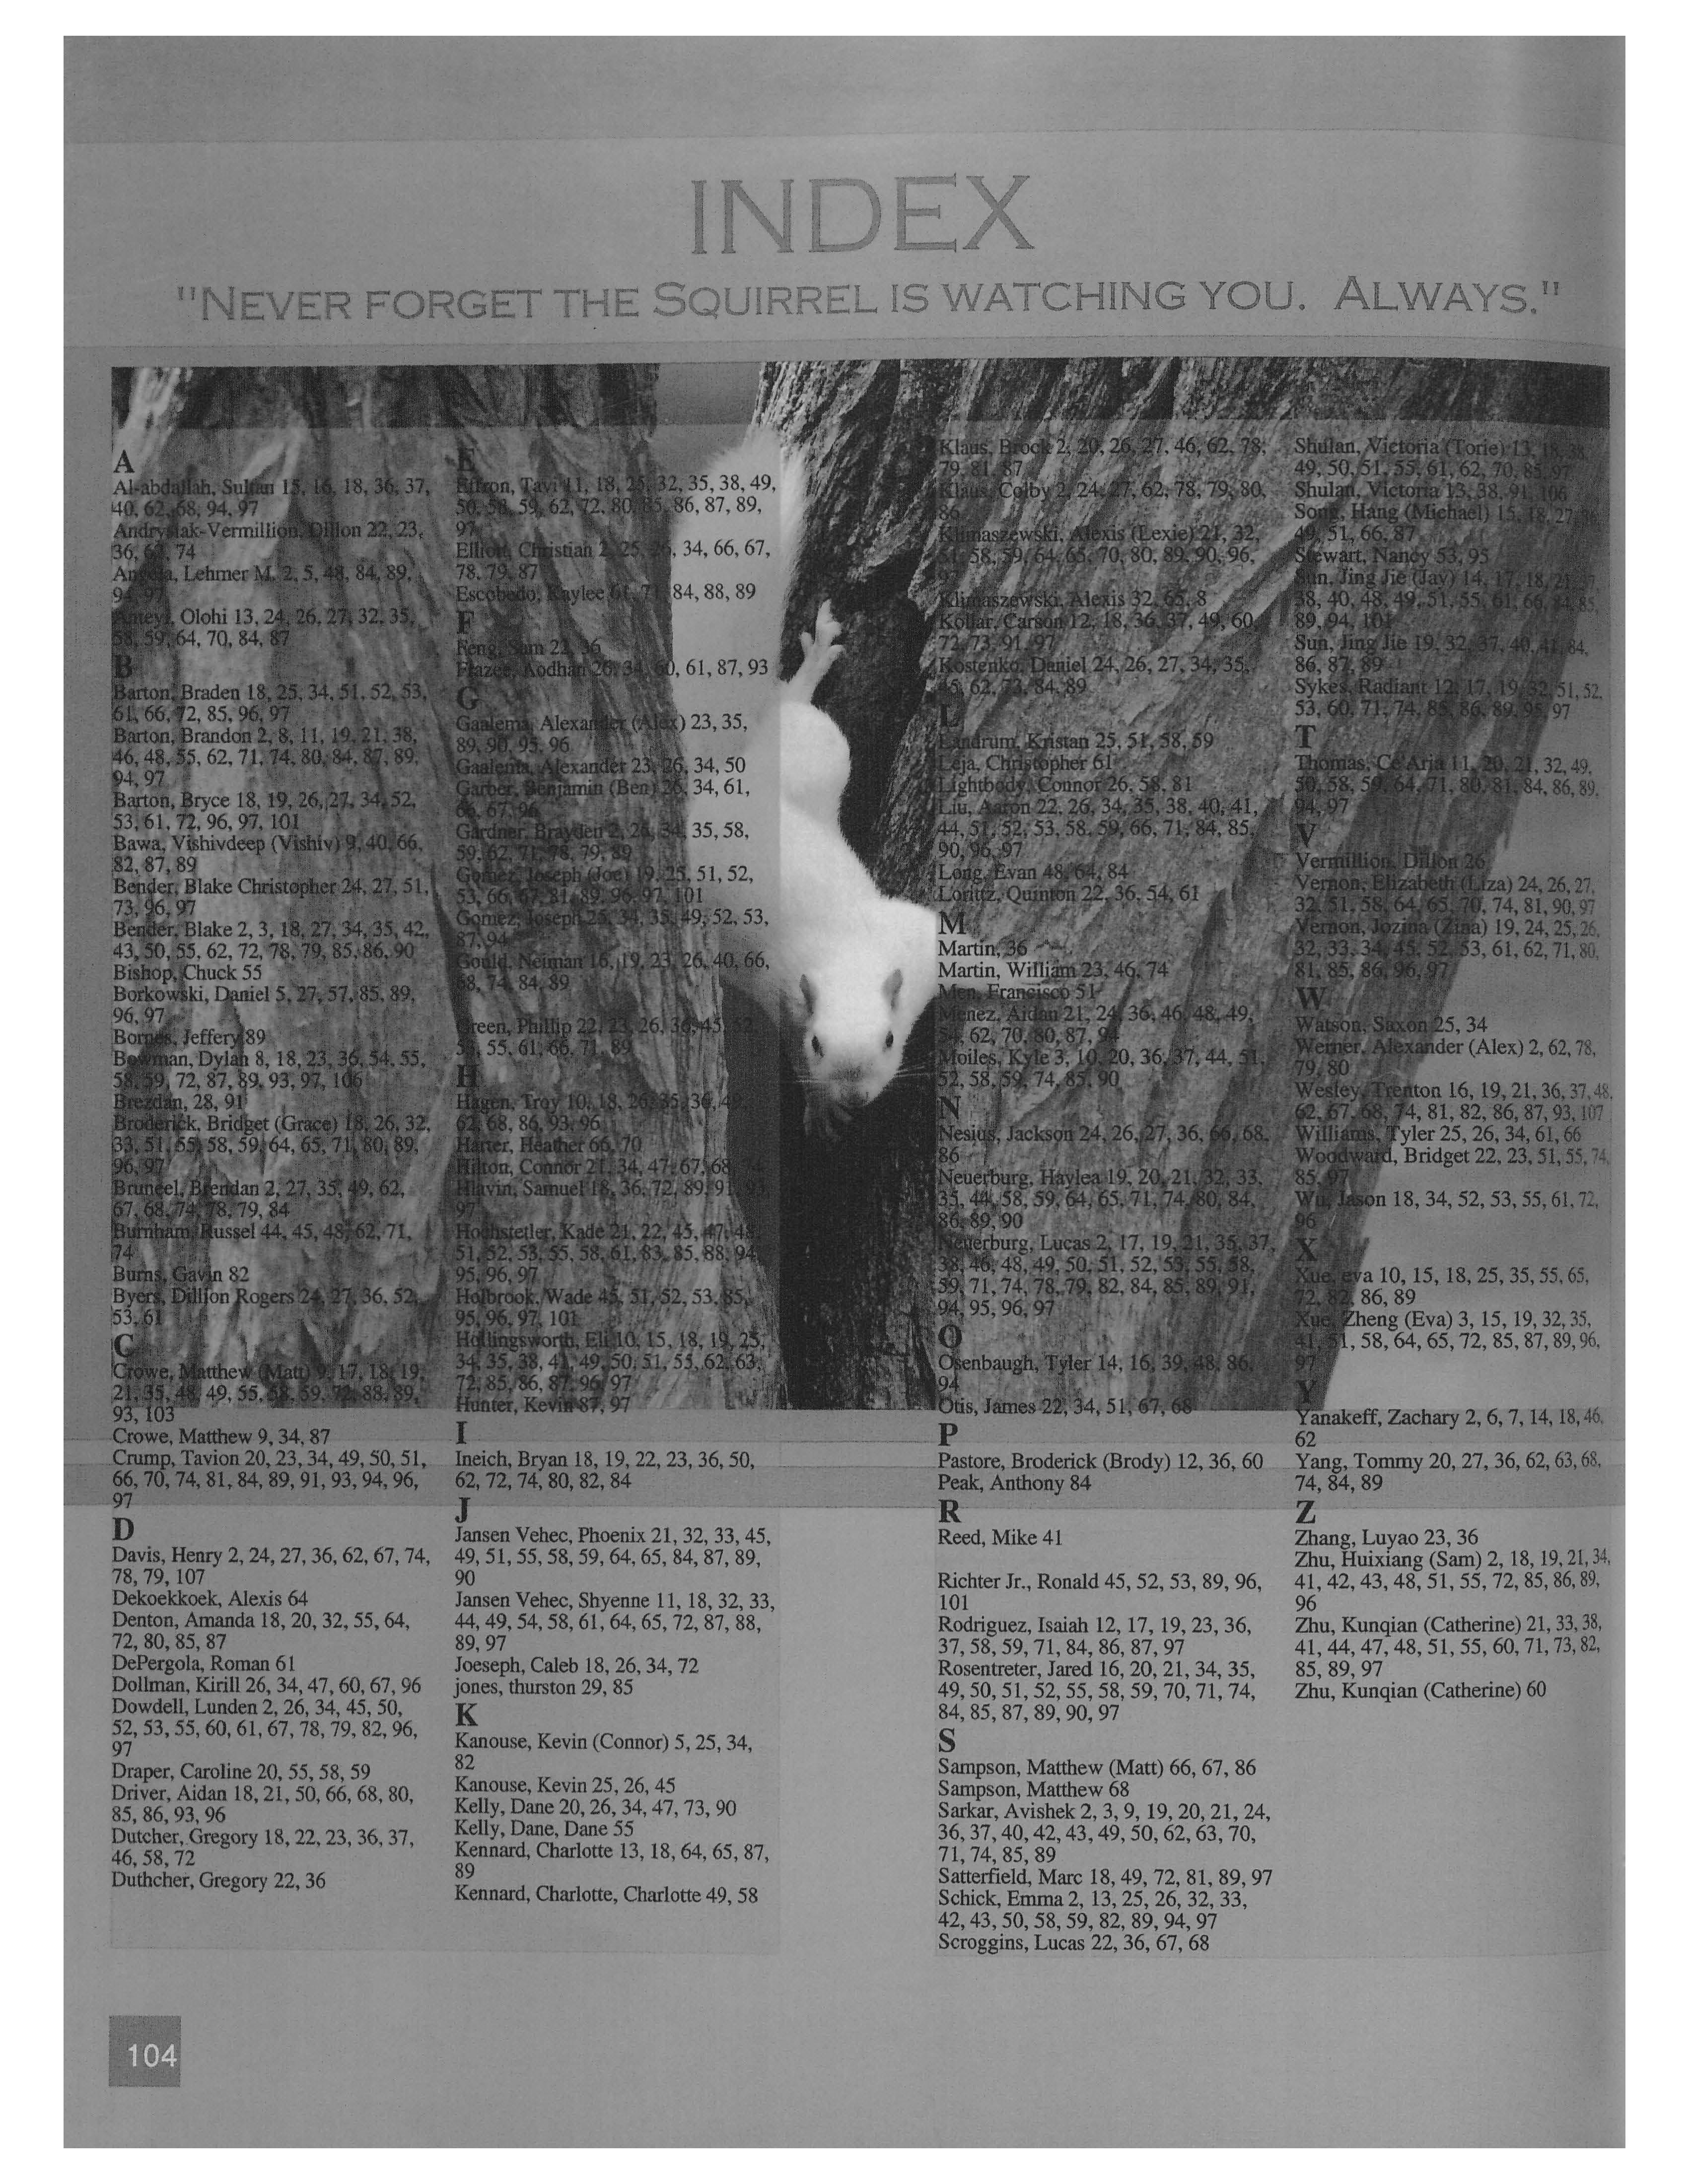 INDEX
"NEVER FORGET THE SQUIRREL IS WATCHING YOU. ALWAYS."
A
Al-abdallah, Sultan 15, 16, 18, 36, 37,
40, 62, 68, 94, 97
Andrysiak-Vermillion, Dillon 22, 23,
36, 74
Lehmer M. 2, 5, 48, 84, 89,
94, 97
Olohi 13, 24, 26, 27, 32, 35,
58, 59, 64, 70, 84, 87
B
Barton, Braden 18, 25, 34, 51, 52, 53,
61, 66, 72, 85, 96, 97
Barton, Brandon 2, 8, 11, 19, 21, 38,
46, 48, 55, 62, 71, 74, 80, 84, 87, 89,
94, 97
Barton, Bryce 18, 19, 26, 27, 34, 52,
53, 61, 72, 96, 97, 101
Bawa, Vishivdeep (Vishiv) 9, 40, 66,
82, 87, 89
Bender, Blake Christopher 24, 27, 51,
73, 96, 97
Bender, Blake 2, 3, 18, 27, 34, 35, 42,
43, 50, 55, 62, 72, 78, 79, 85, 86, 90
Bishop, Chuck 55
Borkowski, Daniel 5, 27, 57, 85, 89,
96, 97
Jeffery 89
Bowman, Dylan 8, 18, 23, 36, 54, 55,
58, 59, 72, 87, 89, 93, 97, 106
Brezdan, 28, 91
Broderick, Bridget (Grace) 18, 26, 32,
33, 51, 55, 58, 59, 64, 65, 71, 80, 89,
96, 97
Bruneel, Brendan 2, 27, 35, 49, 62,
67, 68, 74, 78, 79, 84
Burnham, Russel 44, 45, 48, 62, 71,
74
Burns, Gavin 82
Byers, Dillion Rogers 24, 27, 36, 52,
53, 61
C
Crowe, Matthew (Matt) 9, 17, 18, 19,
21, 35, 48, 49, 55, 58, 59, 72, 88, 89,
93, 103
Crowe, Matthew 9, 34, 87
Crump, Tavion 20, 23, 34, 49, 50, 51,
66, 70, 74, 81, 84, 89, 91, 93, 94, 96,
97
D
Davis, Henry 2, 24, 27, 36, 62, 67, 74,
78, 79, 107
Dekoekkoek, Alexis 64
Denton, Amanda 18, 20, 32, 55, 64,
72, 80, 85, 87
DePergola, Roman 61
Dollman, Kirill 26, 34, 47, 60, 67, 96
Dowdell, Lunden 2, 26, 34, 45, 50,
52, 53, 55, 60, 61, 67, 78, 79, 82, 96,
97
Draper, Caroline 20, 55, 58, 59
Driver, Aidan 18, 21, 50, 66, 68, 80,
85, 86, 93, 96
Dutcher, Gregory 18, 22, 23, 36, 37,
46, 58, 72
Duthcher, Gregory 22, 36
E
Effron, Tavi 11, 18, 25, 32, 35, 38, 49,
50, 58, 59, 62, 72, 80, 85, 86, 87, 89,
97
Elliott, Christian 2, 25, 26, 34, 66, 67,
78, 79, 87
Escobedo, Kaylee 61, 71, 84, 88, 89
F
Feng, Sam 22, 36
Frazee, Aodhan 26, 34, 60, 61, 87, 93
G
Gaalema, Alexander (Alex) 23, 35,
89, 90, 95, 96
Gaalema, Alexander 23, 26, 34, 50
Garber, Benjamin (Ben) 26, 34, 61,
66, 67, 96
Gardner, Brayden 2, 26, 34, 35, 58,
59, 62, 71, 78, 79, 89
Gomez, Joseph (Joe) 19, 25, 51, 52,
53, 66, 67, 81, 89, 96, 97, 101
Gomez, Joseph 25, 34, 35, 49, 52, 53,
87, 94
Gould, Neiman 16, 19, 23, 26, 40, 66,
68, 74, 84, 89
Green, Phillip 22, 23, 26, 36, 45, 52,
53, 55, 61, 66, 71, 89
H
Hagen, Troy 10, 18, 26, 35, 36, 49,
62, 68, 86, 93, 96
Harter, Heather 66, 70
Hilton, Connor 21, 34, 47, 67, 68, 74
Hlavin, Samuel 18, 36, 72, 89, 91, 93,
97
Hochstetler, Kade 21, 22, 45, 47, 48,
51, 52, 53, 55, 58, 61, 83, 85, 88, 94,
95, 96, 97
Holbrook, Wade 45, 51, 52, 53, 85,
95, 96, 97, 101
Hollingsworth, Eli 10, 15, 18, 19, 25,
34, 35, 38, 41, 49, 50, 51, 55, 62, 63,
72, 85, 86, 87, 96, 97
Hunter, Kevin 87, 97
I
Ineich, Bryan 18, 19, 22, 23, 36, 50,
62, 72, 74, 80, 82, 84
J
Jansen Vehec, Phoenix 21, 32, 33, 45,
49, 51, 55, 58, 59, 64, 65, 84, 87, 89,
90
Jansen Vehec, Shyenne 11, 18, 32, 33,
44, 49, 54, 58, 61, 64, 65, 72, 87, 88,
89, 97
Joeseph, Caleb 18, 26, 34, 72
jones, thurston 29, 85
K
Kanouse, Kevin (Connor) 5, 25, 34,
82
Kanouse, Kevin 25, 26, 45
Kelly, Dane 20, 26, 34, 47, 73, 90
Kelly, Dane, Dane 55
Kennard, Charlotte 13, 18, 64, 65, 87,
89
Kennard, Charlotte, Charlotte 49, 58
Klaus, Brock 2, 20, 26, 27, 46, 62, 78,
79, 81, 87
Klaus, Colby 2, 24, 27, 62, 78, 79, 80,
86
Klimaszewski, Alexis (Lexie) 21, 32,
51, 58, 59, 64, 65, 70, 80, 89, 90, 96,
97
Klimaszewski, Alexis 32, 65, 8
Kollar, Carson 12, 18, 36, 37, 49, 60,
72, 73, 91, 97
Kostenko, Daniel 24, 26, 27, 34, 35,
45, 62, 73, 84, 89
L
Landrum, Kristan 25, 51, 58, 59
Leja, Christopher 61
Lightbody, Connor 26, 58, 81
Liu, Aaron 22, 26, 34, 35, 38, 40, 41,
44, 51, 52, 53, 58, 59, 66, 71, 84, 85,
90, 96, 97
Long, Evan 48, 64, 84
Lorittz, Quinton 22, 36, 54, 61
M
Martin, 36
Martin, William 23, 46, 74
Men, Francisco 51
Menez, Aidan 21, 24, 36, 46, 48, 49,
54, 62, 70, 80, 87, 94
Moiles, Kyle 3, 10, 20, 36, 37, 44, 51,
52, 58, 59, 74, 85, 90
N
Nesius, Jackson 24, 26, 27, 36, 66, 68,
86
Neuerburg, Haylea 19, 20, 21, 32, 33,
35, 44, 58, 59, 64, 65, 71, 74, 80, 84,
86, 89, 90
Neuerburg, Lucas 2, 17, 19, 21, 35, 37,
38, 46, 48, 49, 50, 51, 52, 53, 55, 58,
59, 71, 74, 78, 79, 82, 84, 85, 89, 91,
94, 95, 96, 97
O
Osenbaugh, Tyler 14, 16, 39, 48, 86,
94
Otis, James 22, 34, 51, 67, 68
P
Pastore, Broderick (Brody) 12, 36, 60
Peak, Anthony 84
R
Reed, Mike 41
Richter Jr., Ronald 45, 52, 53, 89, 96,
101
Rodriguez, Isaiah 12, 17, 19, 23, 36,
37, 58, 59, 71, 84, 86, 87, 97
Rosentreter, Jared 16, 20, 21, 34, 35,
49, 50, 51, 52, 55, 58, 59, 70, 71, 74,
84, 85, 87, 89, 90, 97
S
Sampson, Matthew (Matt) 66, 67, 86
Sampson, Matthew 68
Sarkar, Avishek 2, 3, 9, 19, 20, 21, 24,
36, 37, 40, 42, 43, 49, 50, 62, 63, 70,
71, 74, 85, 89
Satterfield, Marc 18, 49, 72, 81, 89, 97
Schick, Emma 2, 13, 25, 26, 32, 33,
42, 43, 50, 58, 59, 82, 89, 94, 97
Scroggins, Lucas 22, 36, 67, 68
Shulan, Victoria (Torie) 13, 18, 38,
49, 50, 51, 55, 61, 62, 70, 85, 97
Shulan, Victoria 13, 38, 91, 106
Song, Hang (Michael) 15, 18, 27, 36,
49, 51, 66, 87
Stewart, Nancy 53, 95
Sun, Jing Jie (Jay) 14, 17, 18, 21,
38, 40, 48, 49, 51, 55, 61, 66, 84, 85,
89, 94, 101
Sun, Jing Jie 19, 32, 37, 40, 41, 84,
86, 87, 89
Sykes, Radiant 12, 17, 19, 32, 51, 52,
53, 60, 71, 74, 85, 86, 89, 95, 97
T
Thomas, Ce'Arja 11, 20, 21, 32, 49,
50, 58, 59, 64, 71, 80, 81, 84, 86, 89,
94, 97
V
Vermillion, Dillon 26
Vernon, Elizabeth (Liza) 24, 26, 27,
32, 51, 58, 64, 65, 70, 74, 81, 90, 97
Vernon, Jozina (Zina) 19, 24, 25, 26,
32, 33, 34, 45, 52, 53, 61, 62, 71, 80,
81, 85, 86, 96, 97
W
Watson, Saxon 25, 34
Werner, Alexander (Alex) 2, 62, 78,
79, 80
Wesley, Trenton 16, 19, 21, 36, 37, 48,
62, 67, 68, 74, 81, 82, 86, 87, 93, 107
Williams, Tyler 25, 26, 34, 61, 66
Woodward, Bridget 22, 23, 51, 55, 74,
85, 97
Wu, Jason 18, 34, 52, 53, 55, 61, 72,
96
X
Xue, eva 10, 15, 18, 25, 35, 55, 65,
72, 82, 86, 89
Xue, Zheng (Eva) 3, 15, 19, 32, 35,
41, 51, 58, 64, 65, 72, 85, 87, 89, 96,
97
Y
Yanakeff, Zachary 2, 6, 7, 14, 18, 46,
62
Yang, Tommy 20, 27, 36, 62, 63, 68,
74, 84, 89
Z
Zhang, Luyao 23, 36
Zhu, Huixiang (Sam) 2, 18, 19, 21, 34,
41, 42, 43, 48, 51, 55, 72, 85, 86, 89,
96
Zhu, Kunqian (Catherine) 21, 33, 38,
41, 44, 47, 48, 51, 55, 60, 71, 73, 82,
85, 89, 97
Zhu, Kunqian (Catherine) 60
104